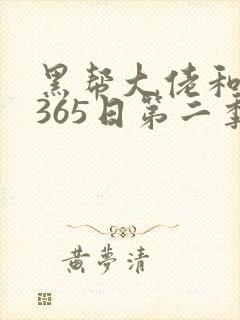 黑帮大佬和
365日第二季
黄梦清